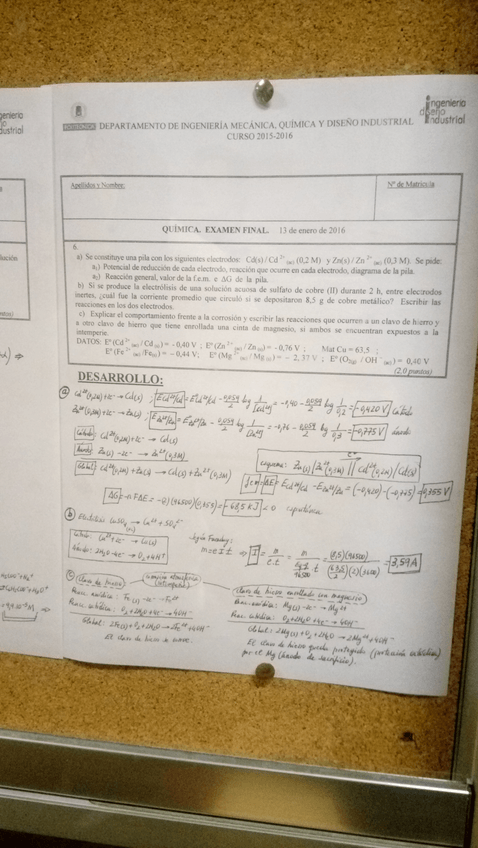 ingeniería
diseño
industrial
DEPARTAMENTO DE INGENIERÍA MECÁNICA, QUÍMICA Y DISEÑO INDUSTRIAL
CURSO 2015-2016
Apellidos y Nombre:
Nº de Matrícula
QUÍMICA. EXAMEN FINAL. 13 de enero de 2016
6.
a) Se constituye una pila con los siguientes electrodos: Cd(s) / Cd²⁺(ac) (0,2 M) y Zn(s) / Zn²⁺(ac) (0,3 M). Se pide:
a₁) Potencial de reducción de cada electrodo, reacción que ocurre en cada electrodo, diagrama de la pila.
a₂) Reacción general, valor de la f.e.m. e ΔG de la pila.
b) Si se produce la electrólisis de una solución acuosa de sulfato de cobre (II) durante 2 h, entre electrodos
inertes, ¿cuál fue la corriente promedio que circuló si se depositaron 8,5 g de cobre metálico? Escribir las
reacciones en los dos electrodos.
c) Explicar el comportamiento frente a la corrosión y escribir las reacciones que ocurren a un clavo de hierro y
a otro clavo de hierro que tiene enrollada una cinta de magnesio, si ambos se encuentran expuestos a la
intemperie.
DATOS: Eº (Cd²⁺/Cd(s)) = -0,40 V ; Eº (Zn²⁺/Zn(s)) = -0,76 V ; Mat Cu = 63,5 ;
Eº (Fe²⁺/Fe(s)) = - 0,44 V; Eº (Mg²⁺/Mg(s)) = - 2,37 V ; Eº (O₂(g) / OH⁻(ac)) = 0,40 V
(2,0 puntos)
DESARROLLO:
ⓐ Cd²⁺(0,2M) + 2e⁻ → Cd(s) ; E Cd²⁺/Cd = Eº Cd²⁺/Cd - 0,059/2 log 1/[Cd²⁺] = -0,40 - 0,059/2 log 1/0,2 = -0,420 V Cátodo
Zn²⁺(0,3M) + 2e⁻ → Zn(s) ; E Zn²⁺/Zn = Eº Zn²⁺/Zn - 0,059/2 log 1/[Zn²⁺] = -0,76 - 0,059/2 log 1/0,3 = -0,775 V ánodo
Cátodo: Cd²⁺(0,2M) + 2e⁻ → Cd(s)
Ánodo: Zn(s) - 2e⁻ → Zn²⁺(0,3M)
Global: Cd²⁺(0,2M) + Zn(s) → Cd(s) + Zn²⁺(0,3M)
esquema: Zn(s) / Zn²⁺(0,3M) || Cd²⁺(0,2M) / Cd(s)
f.e.m = ΔE = E Cd²⁺/Cd - E Zn²⁺/Zn = (-0,420) - (-0,775) = 0,355 V
ΔG = -n F ΔE = -2 (96500)(0,355) = -68,5 KJ < 0 espontánea
ⓑ Electrólisis CuSO₄ → Cu²⁺ + SO₄²⁻
Cátodo: Cu²⁺ + 2e⁻ → Cu(s)
Ánodo: 2H₂O - 4e⁻ → O₂ + 4H⁺
Según Faraday:
m = E.I.t → I = (8,5)(96500) / (63,5)(2)(3600) = 3,59 A
ⓒ clavo de hierro
corrosión atmosférica
clavo de hierro enrollado con magnesio
Reac. anódica: Fe(s) - 2e⁻ → Fe²⁺
Reac. catódica: O₂ + 2H₂O + 4e⁻ → 4OH⁻
Global: 2Fe(s) + O₂ + 2H₂O → 2Fe²⁺ + 4OH⁻
El clavo de hierro se corroe.
Reac. anódica: Mg(s) - 2e⁻ → Mg²⁺
Reac. catódica: O₂ + 2H₂O + 4e⁻ → 4OH⁻
Global: 2Mg(s) + O₂ + 2H₂O → 2Mg²⁺ + 4OH⁻
El clavo de hierro queda protegido (protección catódica)
por el Mg (ánodo de sacrificio).